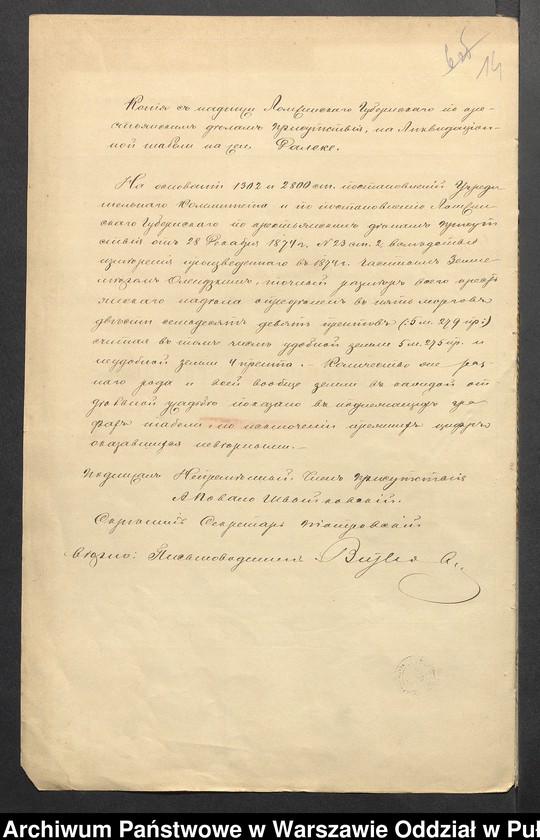 14
Копія съ надписи Ломжинскаго Губернскаго по кре-
стьянскимъ дѣламъ Присутствія, на Ликвидаціон-
ной табели на
На основаніи 1302 и 2800 ст. постановленій Учреди-
тельнаго Комитета и по постановленію Ломжин-
скаго Губернскаго по крестьянскимъ дѣламъ Присут-
ствія отъ 28 Декабря 1874 г. N 23 ст. 2 вслѣдствіе
измѣренія произведеннаго въ 1874 г. частнымъ Земле-
мѣромъ точный размѣръ всего кресть-
янскаго надѣла опредѣленъ въ пять морговъ
двѣсти семьдесятъ девять прентовъ (: 5 м. 279 пр :)
считая въ томъ числѣ удобной земли 5 м. 275 пр. и
неудобной земли 4 прента. - Количество же раз-
наго рода и всей вообще земли въ каждой от-
дѣльной усадьбѣ показано въ подлежащихъ гра-
фахъ табели по исключеніи прежнихъ цифръ
оказавшихся невѣрными. -
Подписалъ Непремѣнный Членъ Присутствія
Скрѣпилъ Секретарь Піотровскій
Вѣрно: Письмоводитель
Archiwum Państwowe w Warszawie Oddział w Puł